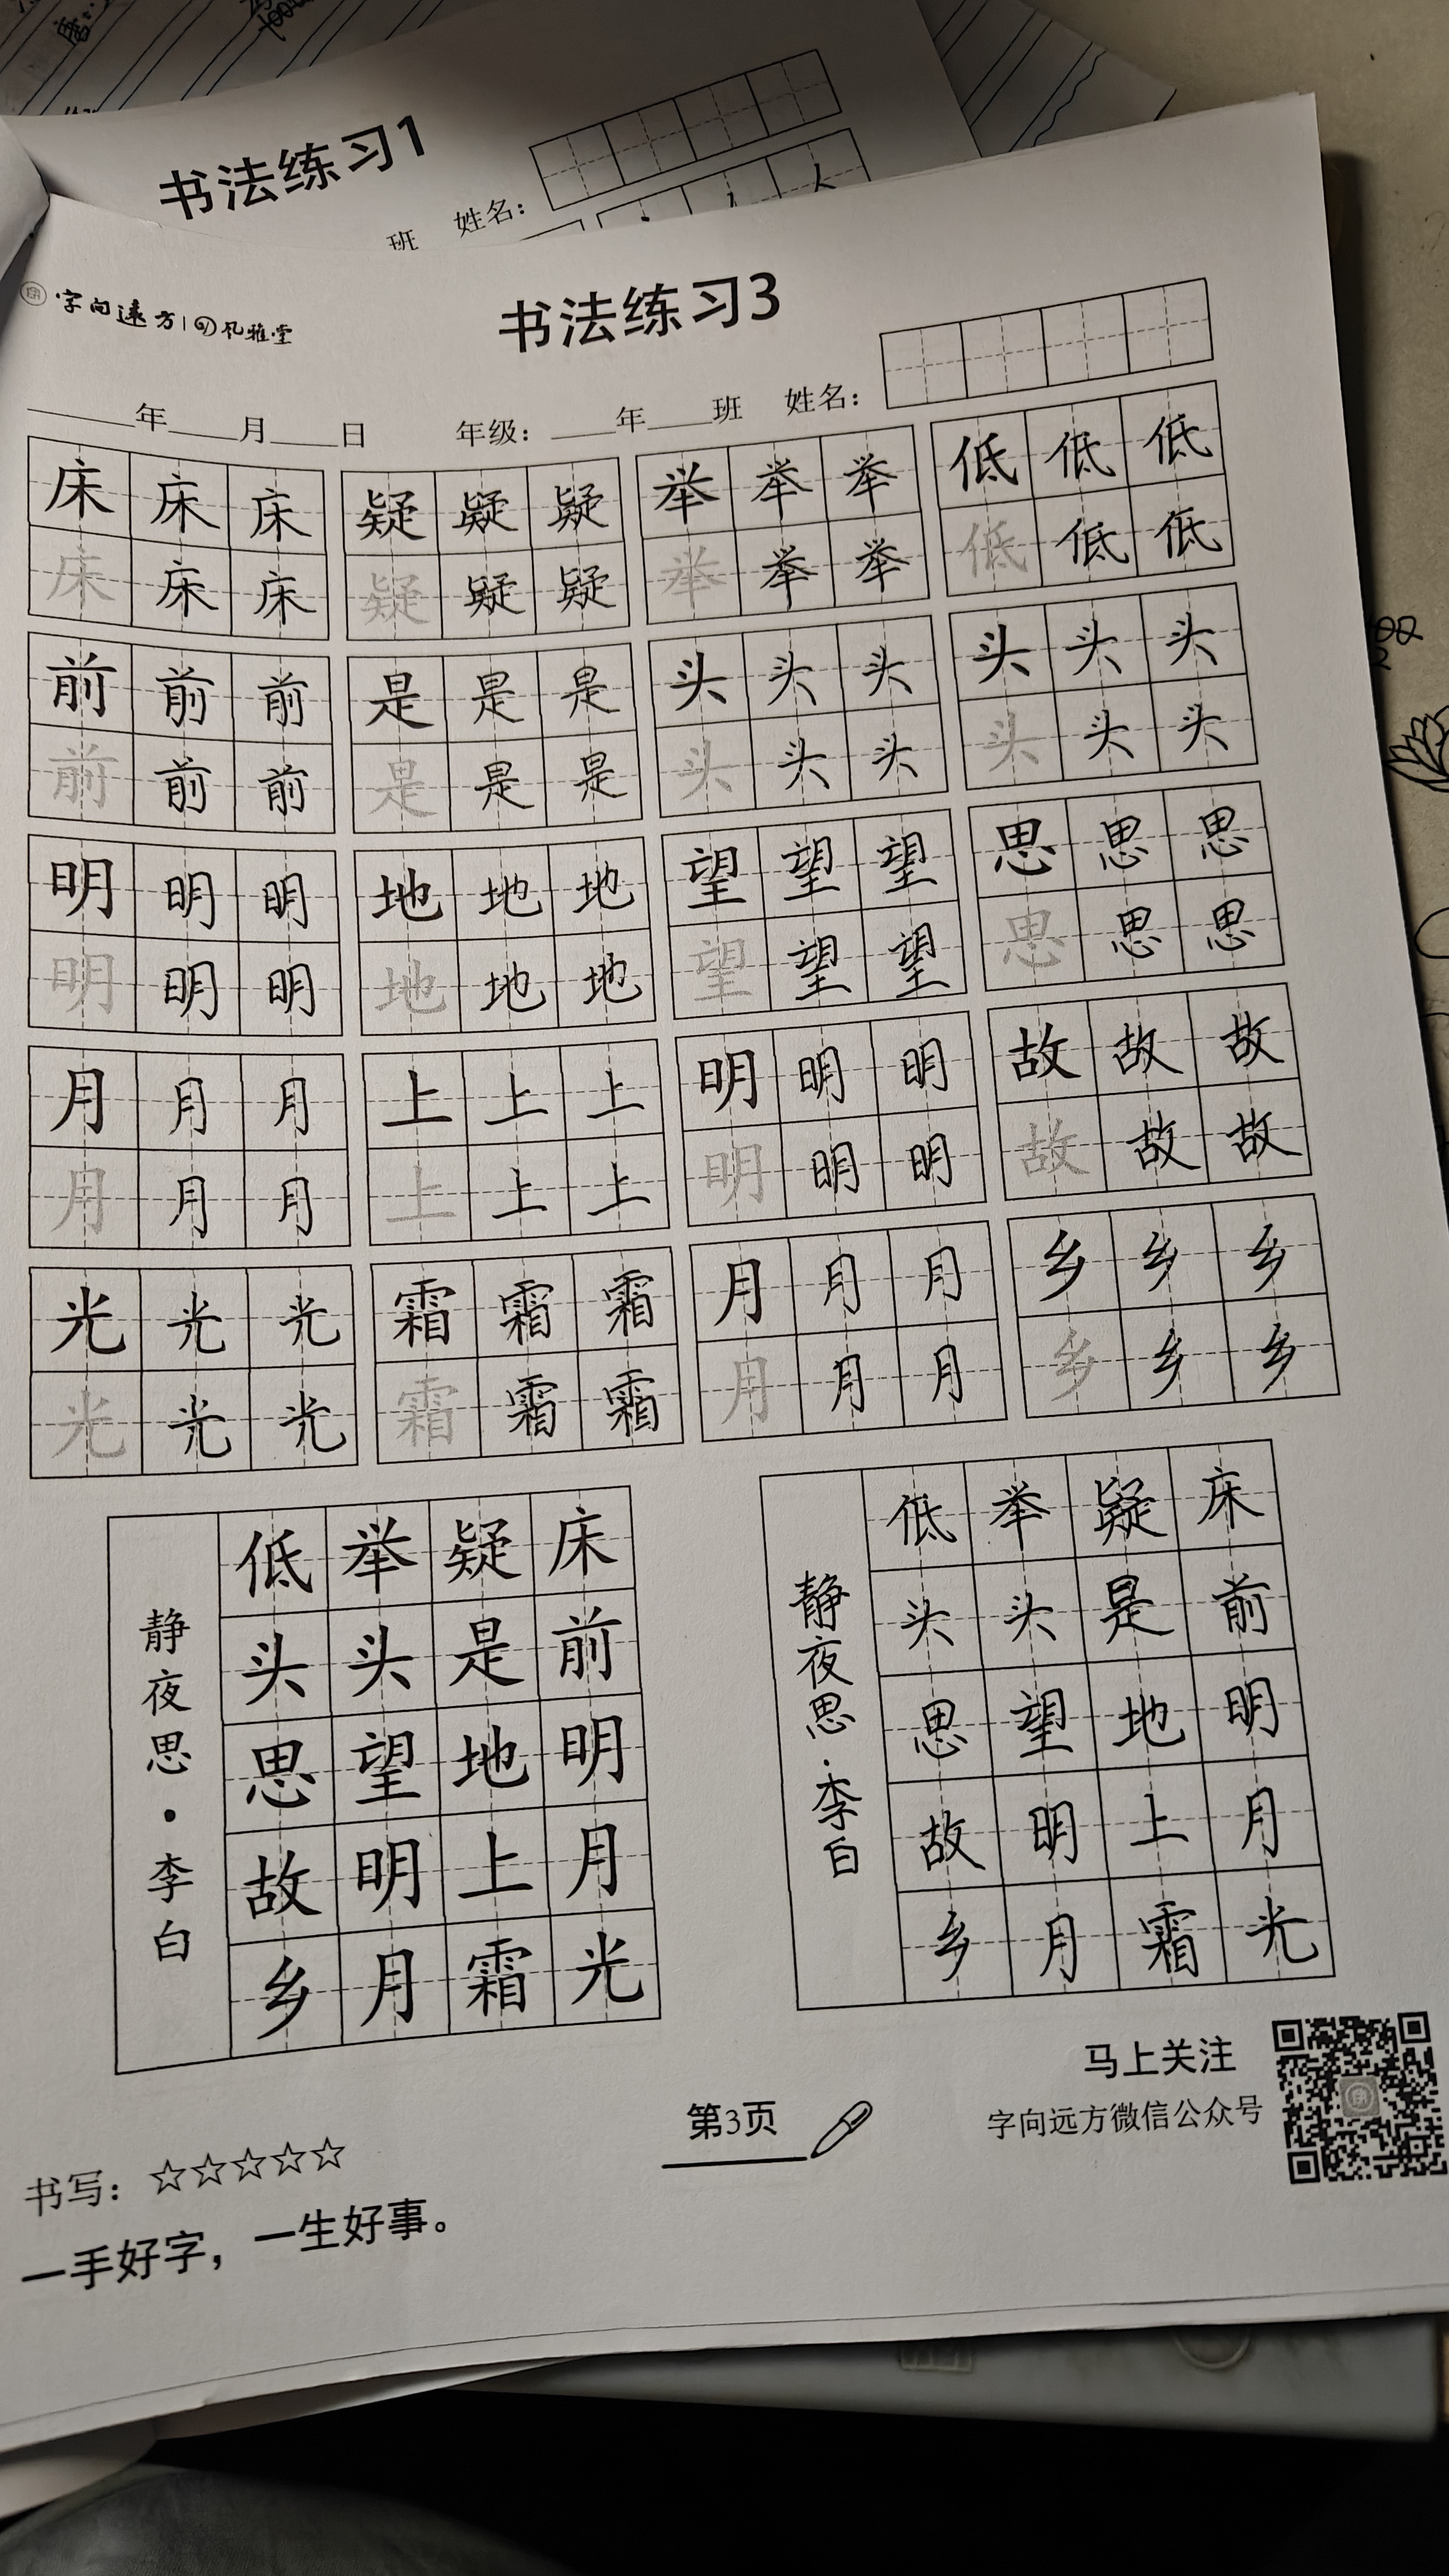 书法练习1
班 姓名：
字向远方 风雅堂
书法练习3
年 月 日 年级： 年 班 姓名：
床 床 床 疑 疑 疑 举 举 举 低 低 低
床 床 床 疑 疑 疑 举 举 举 低 低 低
前 前 前 是 是 是 头 头 头 头 头 头
前 前 前 是 是 是 头 头 头 头 头 头
明 明 明 地 地 地 望 望 望 思 思 思
明 明 明 地 地 地 望 望 望 思 思 思
月 月 月 上 上 上 明 明 明 故 故 故
月 月 月 上 上 上 明 明 明 故 故 故
光 光 光 霜 霜 霜 月 月 月 乡 乡 乡
光 光 光 霜 霜 霜 月 月 月 乡 乡 乡
床前明月光
疑是地上霜
举头望明月
低头思故乡
静夜思·李白
床前明月光
疑是地上霜
举头望明月
低头思故乡
静夜思·李白
马上关注
字向远方微信公众号
第3页
书写：☆☆☆☆☆
一手好字，一生好事。